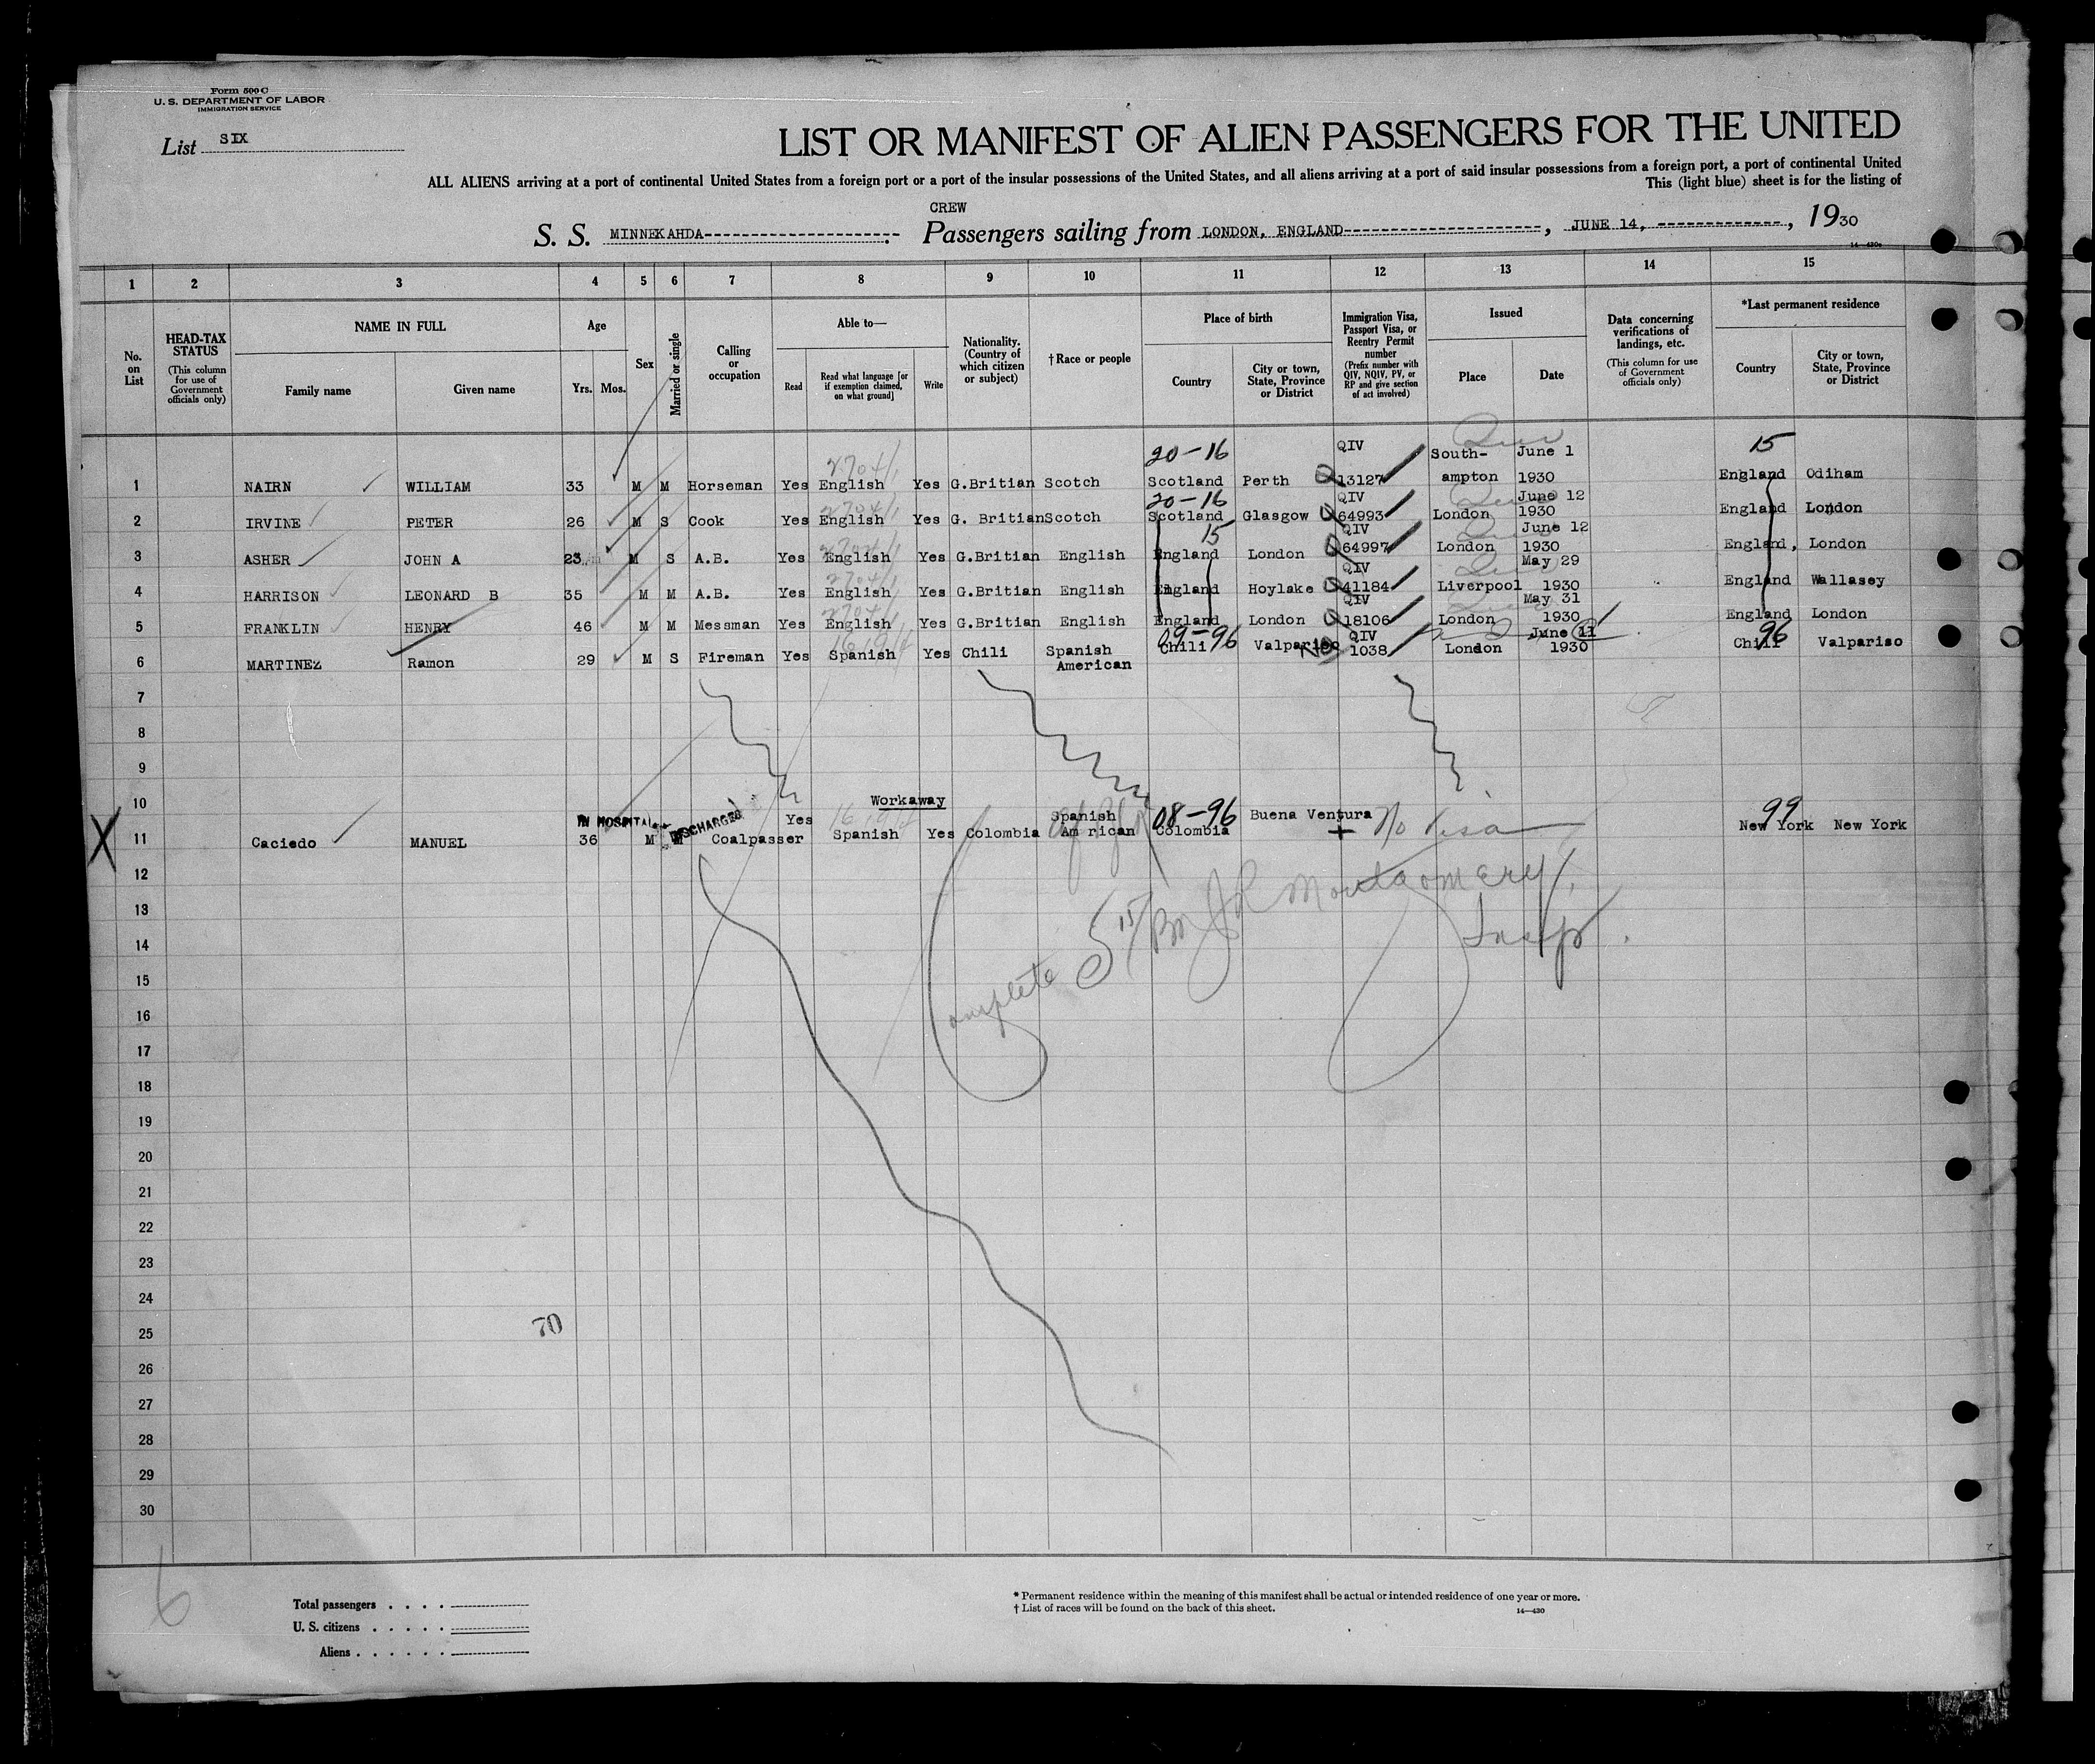 Form 500 C
U. S. DEPARTMENT OF LABOR
IMMIGRATION SERVICE
List SIX
LIST OR MANIFEST OF ALIEN PASSENGERS FOR THE UNITED
ALL ALIENS arriving at a port of continental United States from a foreign port or a port of the insular possessions of the United States, and all aliens arriving at a port of said insular possessions from a foreign port, a port of continental United
This (light blue) sheet is for the listing of
CREW
S. S. MINNEKAHDA Passengers sailing from LONDON, ENGLAND, JUNE 14, 1930
14—430a
1 2 3 4 5 6 7 8 9 10 11 12 13 14 15
No. on List
HEAD-TAX STATUS (This column for use of Government officials only)
NAME IN FULL
Family name Given name
Age
Yrs. Mos.
Sex
Married or single
Calling or occupation
Able to—
Read
Read what language [or if exemption claimed, on what ground]
Write
Nationality. (Country of which citizen or subject)
†Race or people
Place of birth
Country
City or town, State, Province or District
Immigration Visa, Passport Visa, or Reentry Permit number (Prefix number with QIV, NQIV, PV, or RP and give section of act involved)
Issued
Place Date
Data concerning verifications of landings, etc. (This column for use of Government officials only)
*Last permanent residence
Country
City or town, State, Province or District
20-16 QIV South- June 1 15
1 NAIRN WILLIAM 33 M M Horseman Yes English Yes G.Britian Scotch Scotland Perth 13127 ampton 1930 England Odiham
20-16 QIV June 12
2 IRVINE PETER 26 M S Cook Yes English Yes G. Britian Scotch Scotland Glasgow 64993 London 1930 England London
15 QIV June 12
3 ASHER JOHN A 23 M S A.B. Yes English Yes G.Britian English England London 64997 London 1930 England, London
QIV May 29
4 HARRISON LEONARD B 35 M M A.B. Yes English Yes G.Britian English England Hoylake 41184 Liverpool 1930 England Wallasey
QIV May 31
5 FRANKLIN HENRY 46 M M Messman Yes English Yes G.Britian English England London 18106 London 1930 England London
09-96 QIV June 11 96
6 MARTINEZ Ramon 29 M S Fireman Yes Spanish Yes Chili Spanish American Chili Valpariso 1038 London 1930 Chili Valpariso
7
8
9
10 Workaway
IN HOSPITAL DISCHARGED 08-96 99
11 Caciedo MANUEL 36 M M Coalpasser Yes Spanish Yes Colombia Spanish Am rican Colombia Buena Ventura No Visa New York New York
X
12
13
14
15
16
17
18
19
20
21
22
23
24
25
26
27
28
29
30
Complete 5 15/ Montgomery
Insp.
70
6
Total passengers
U. S. citizens
Aliens
* Permanent residence within the meaning of this manifest shall be actual or intended residence of one year or more.
† List of races will be found on the back of this sheet.
14—430